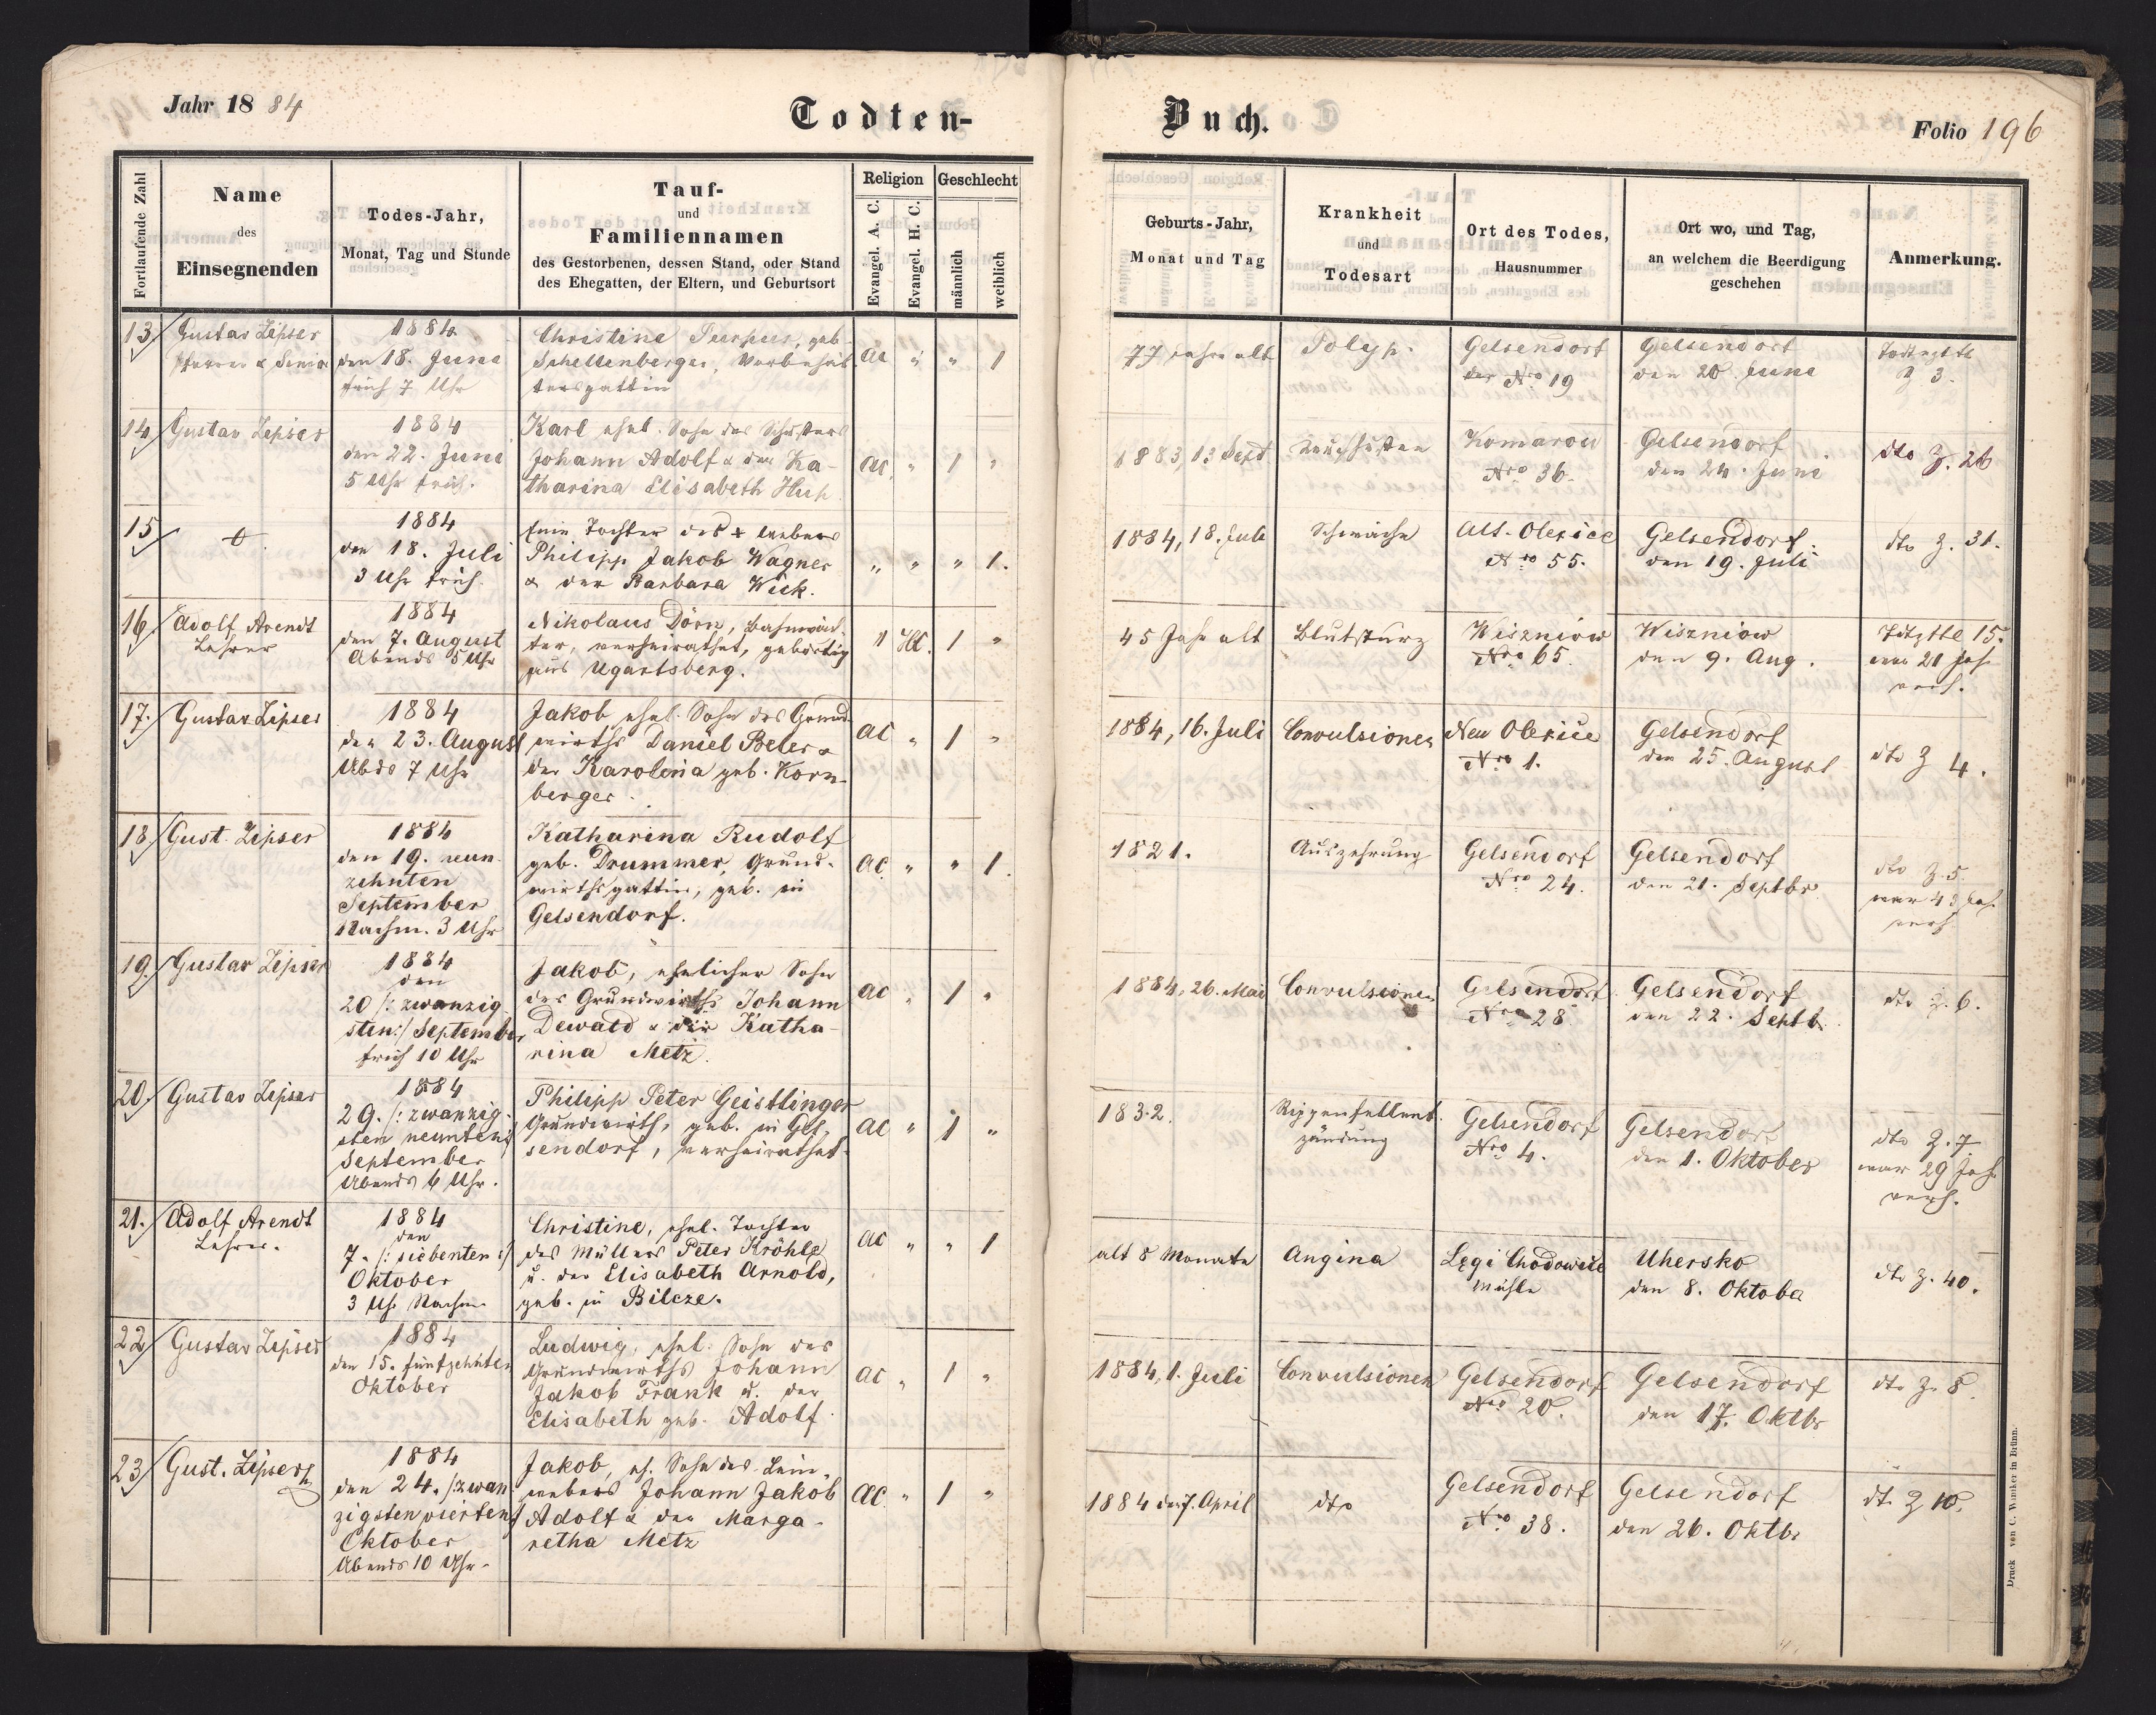 Jahr 18 84
Todten-
Buch.
Folio 196
Fortlaufende Zahl
Name
des
Einsegnenden
Todes-Jahr,
Monat, Tag und Stunde
Tauf-
und
Familiennamen
des Gestorbenen, dessen Stand, oder Stand
des Ehegatten, der Eltern, und Geburtsort
Religion
Evangel. A. C.
Evangel. H. C.
Geschlecht
männlich
weiblich
Geburts-Jahr,
Monat und Tag
Krankheit
und
Todesart
Ort des Todes,
Hausnummer
Ort wo, und Tag,
an welchem die Beerdigung
geschehen
Anmerkung.
13
Gustav Zipser
Pfarrer & Senior
1884
den 18. Juni
früh 7 Uhr
Christine Purpus, geb.
Schellenberger,
gattin
AC " " 1
77 Jahre alt
Polyp.
Gelsendorf
Nro 19
Gelsendorf
den 20. Juni
Z 3.
14
Gustav Zipser
1884
den 22. Juni
5 Uhr früh.
Karl ehel. Sohn des Schusters
Johann Adolf & der Ka-
tharina Elisabeth Hup
AC " 1 "
1883, 13 Sept
Keuchhusten
Komarow
Nro 36.
Gelsendorf
den 24. Juni
dto Z. 26
15
1884
den 18. Juli
3 Uhr früh.
eine Tochter des + Webers
Philipp Jakob Wagner
& der Barbara Wick.
" " " 1.
1884, 18. Juli
Schwäche
Alt-Olexice
Nro 55.
Gelsendorf.
den 19. Juli
dto Z. 31.
16.
Adolf Arendt
Lehrer
1884
den 7. August
Abends 5 Uhr
Nikolaus Dörn, Bahnwäch-
ter, verheirathet, gebürtig
aus Ugartsberg.
" HC. 1 "
45 Jahr alt
Blutsturz
Wiszniow
Nro 65.
Wiszniow
den 9. Aug.
15.
war 21 Jah
verh.
17.
Gustav Zipser
1884
den 23. August
Abds 7 Uhr
Jakob ehel. Sohn des Grund-
wirths Daniel Beler &
der Karolina geb. Korn-
berger.
AC " 1 "
1884, 16. Juli
Convulsionen
Neu Olexice
Nro 1.
Gelsendorf
den 25. August
dto Z 4.
18.
Gust. Zipser
1884
den 19. neun-
zehnten
September
Nachm. 3 Uhr
Katharina Rudolf
geb. Drummer, Grund-
wirthsgattin, geb. in
Gelsendorf.
AC. " " 1.
1821.
Auszehrung
Gelsendorf
Nro 24.
Gelsendorf
den 21. Septbr.
dto Z. 5
war 43 Jah.
verh
19.
Gustav Zipser
1884
den
20 /: zwanzig-
sten :/ September
früh 10 Uhr
Jakob, ehelicher Sohn
des Grundwirths Johann
Dewald & der Katha-
rina Metz.
AC " 1 "
1884, 26. Mai
Convulsionen
Gelsendorf
Nro 28
Gelsendorf
den 22. Septb.
dto Z. 6.
20.
Gustav Zipser
1884
29. /: zwanzig-
sten neunten :/
September
Abends 6 Uhr.
Philipp Peter Geistlinger
Grundwirth, geb. in Gel-
sendorf, verheirathet.
AC " 1 "
1832.
Rippenfellent-
zündung
Gelsendorf
Nro 4.
Gelsendorf
den 1. Oktober
dto Z. 7
war 29 Jah
verh.
21.
Adolf Arendt
Lehrer.
1884
den
7. /: siebenten :/
Oktober
3 Uhr Nachm.
Christine, ehel. Tochter
des Müllers Peter Kröhle
u. der Elisabeth Arnold,
geb. in Bilcze.
AC " " 1
alt 8 Monate
Angina
Lęgi Chodowice
Mühle
Uhersko
den 8. Oktober
dto Z. 40.
22
Gustav Zipser
1884
den 15. fünfzehnten
Oktober
Ludwig, ehel. Sohn des
Grundwirths Johann
Jakob Frank u. der
Elisabeth geb. Adolf.
AC " 1 "
1884, 1. Juli
Convulsionen
Gelsendorf
Nro 20.
Gelsendorf
den 17. Oktbr
dto Z. 8.
23
Gust. Zipser
1884
den 24. /: zwan-
zigsten vierten :/
Oktober
Abends 10 Uhr.
Jakob, eh. Sohn des Lein-
webers Johann Jakob
Adolf & der Marga-
retha Metz
AC. " 1 "
1884 den 7. April
dto
Gelsendorf
Nro 38.
Gelsendorf
den 26. Oktbr
dto Z 10.
Druck von C. Winiker in Brünn.